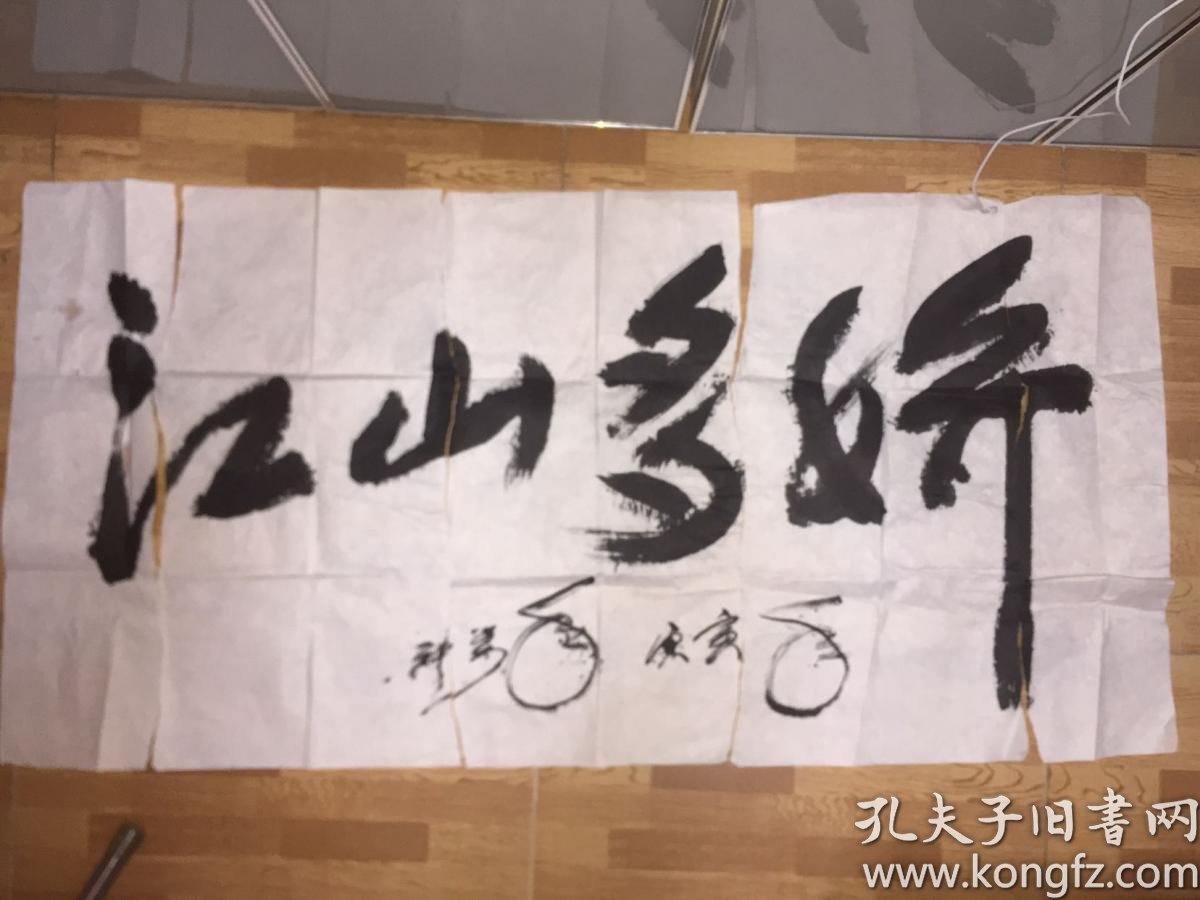 江山多娇
庚寅
孔夫子旧书网
www.kongfz.com